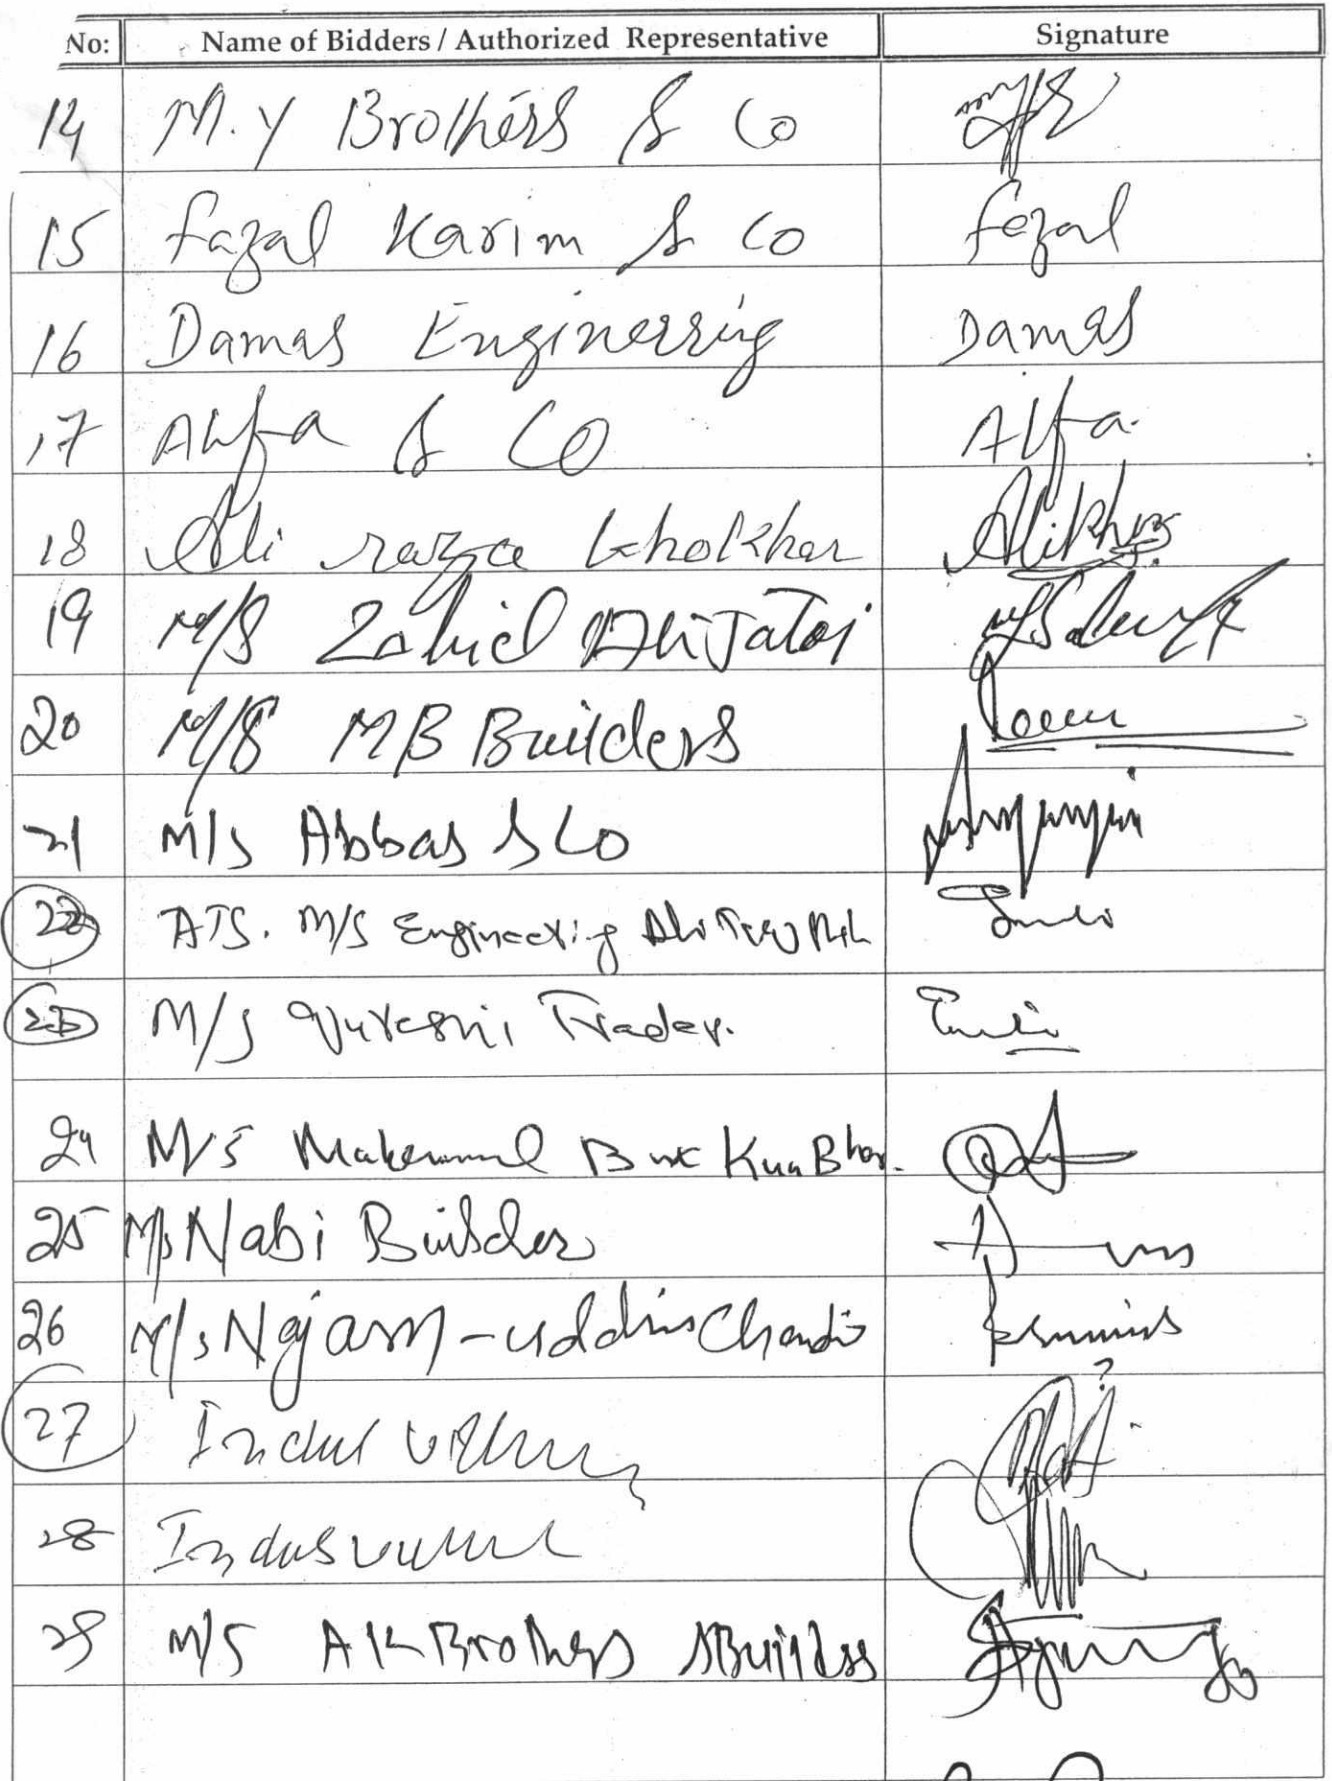 No: Name of Bidders / Authorized Representative Signature
14 M.Y Brothers & Co
15 Fazal Karim & Co Fezal
16 Damas Enginerring Damas
17 Alfa & Co Alfa.
18 Ali razza khokhar
19 M/S Zahid Ali Jatoi
20 M/S MB Builders
21 M/s Abbas & Co
22 ATS. M/S Engineering
23 M/S Qureshi Trader.
24 M/S Bux
25 M/s Nabi Builder
26 M/s Najam-uddin Chandio
27 Indus
28 Indus
29 M/S AK Brothers & Builders